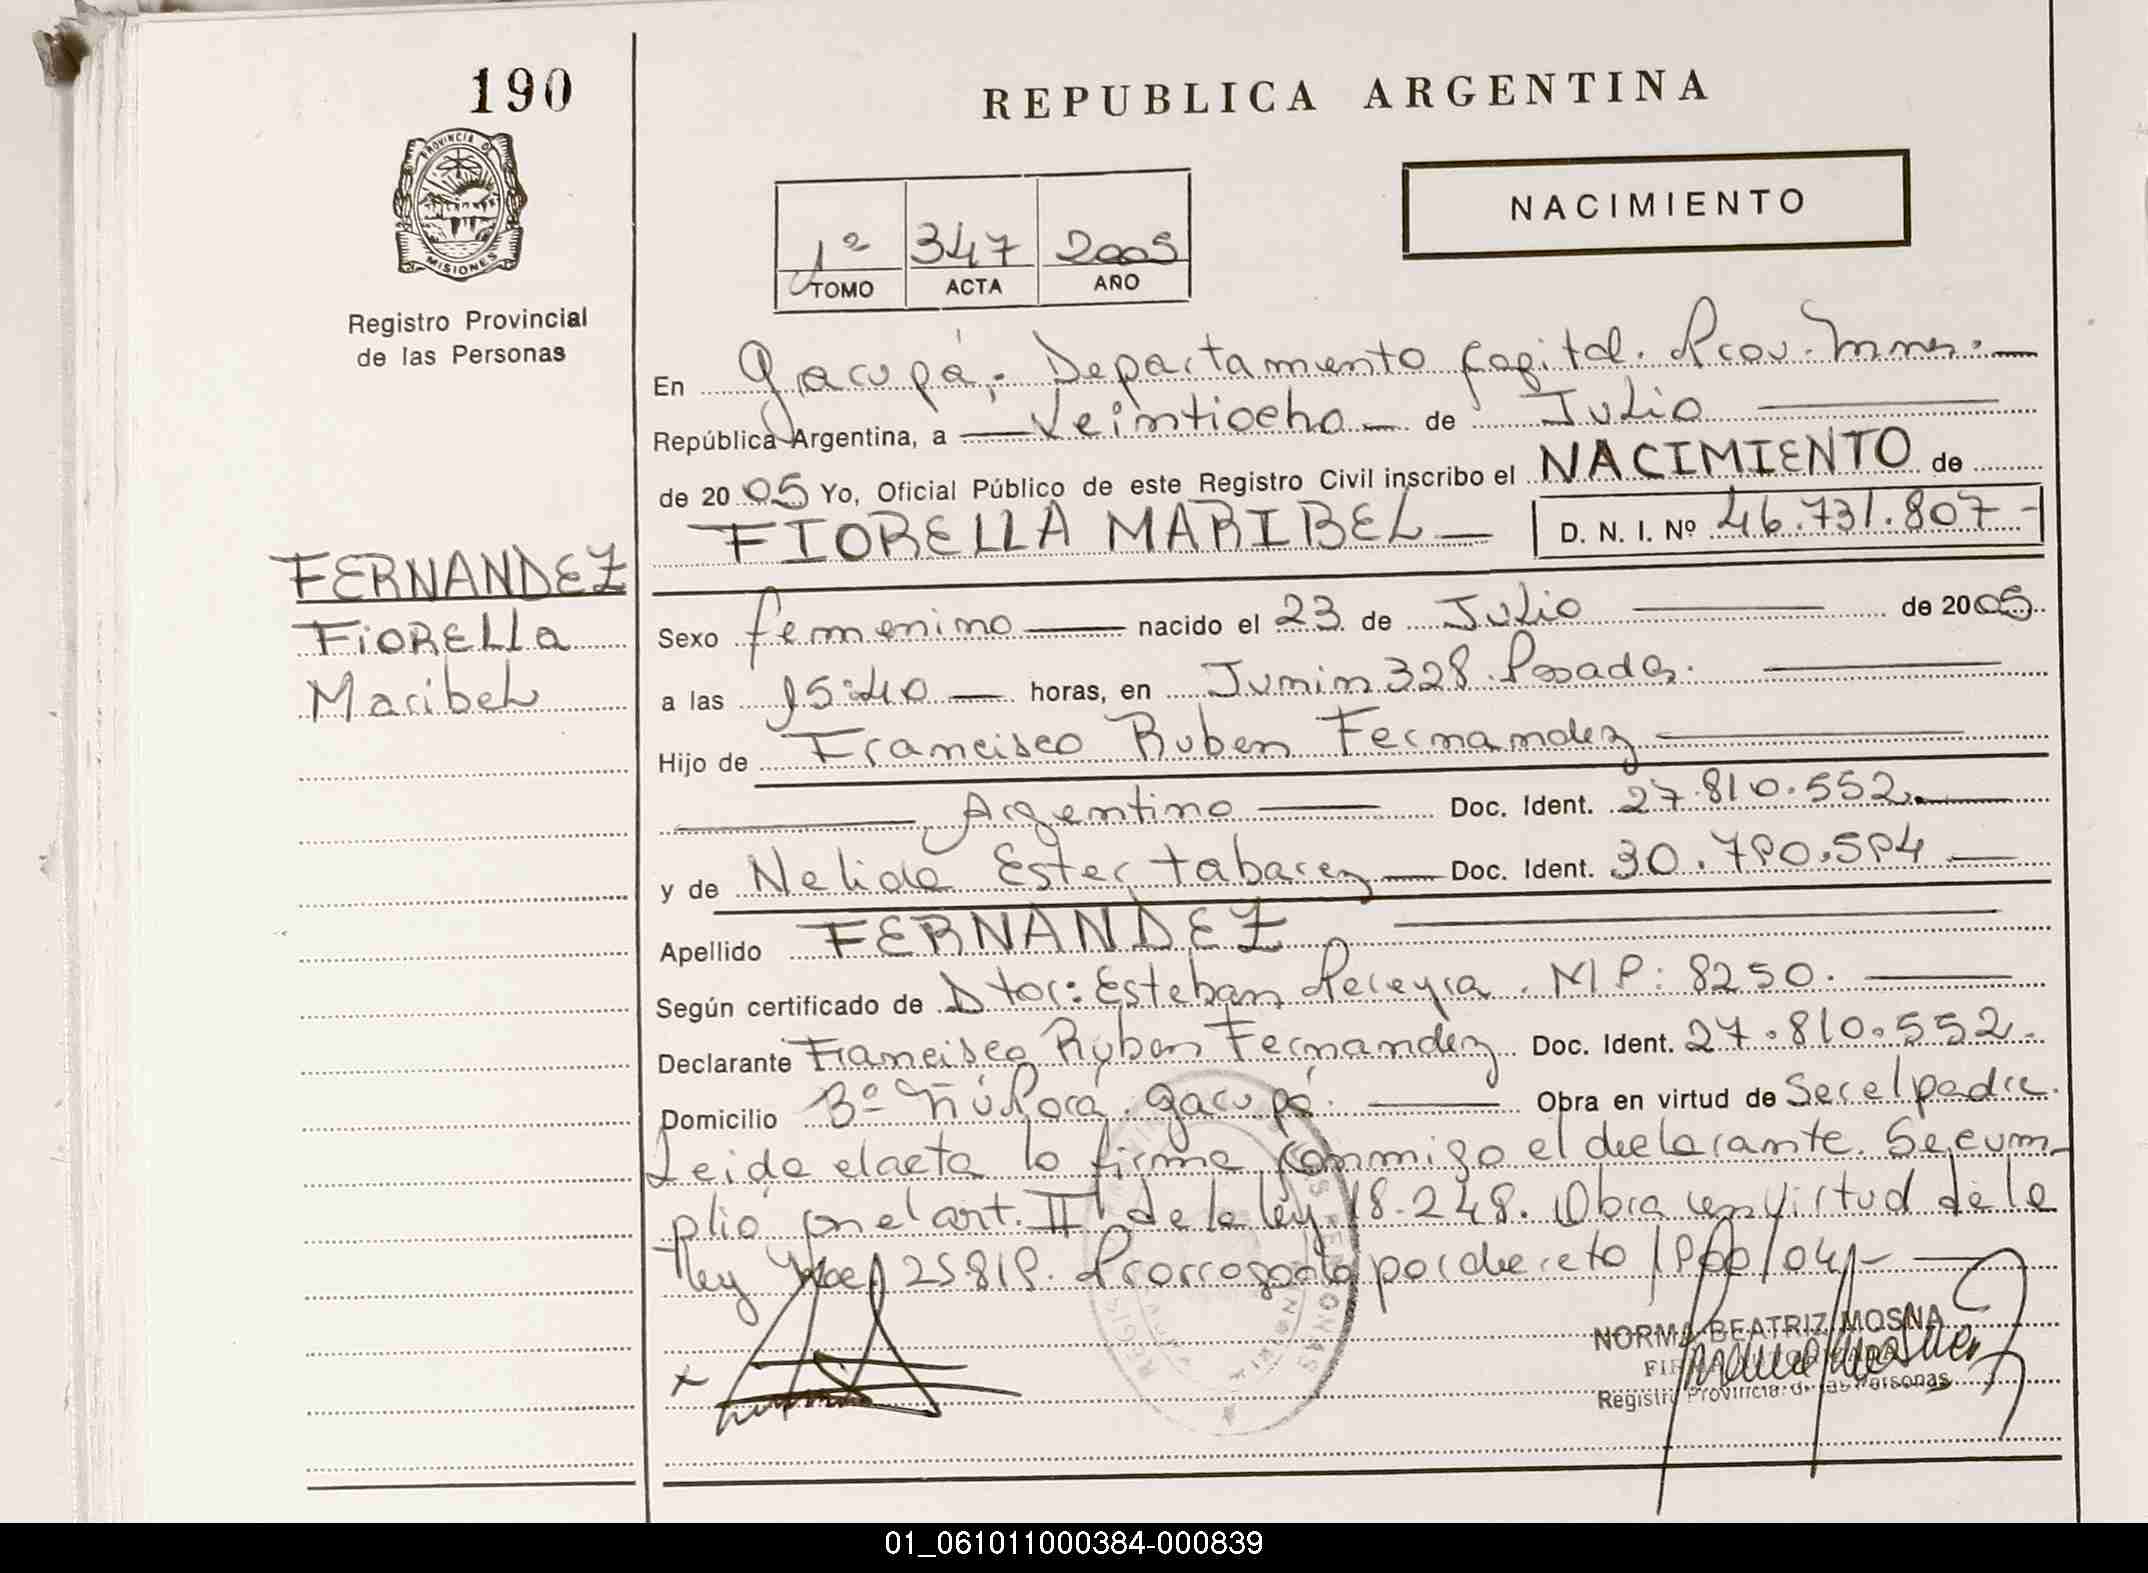 190
REPUBLICA ARGENTINA
PROVINCIA DE
MISIONES
Registro Provincial
de las Personas
1º 347 2005
TOMO ACTA AÑO
NACIMIENTO
En Garupá. Departamento Capital. Prov. Mnes.
República Argentina, a Veintiocho de Julio
de 2005 Yo, Oficial Público de este Registro Civil inscribo el NACIMIENTO de
FIORELLA MARIBEL D. N. I. Nº 46.731.807
FERNANDEZ
FiORELLa
Maribel
Sexo femenino nacido el 23 de Julio de 2005
a las 15:40 horas, en Junin 328. Posadas.
Hijo de Francisco Ruben Fernandez
Argentino Doc. Ident. 27.810.552.
y de Nelida Ester Tabarez Doc. Ident. 30.790.594
Apellido FERNANDEZ
Según certificado de Dtor: Esteban Pereyra. MP: 8250.
Declarante Francisco Ruben Fernandez Doc. Ident. 27.810.552.
Domicilio Bº Ñú Porá. Garupá. Obra en virtud de Ser el padre.
Leida el acta la firma conmigo el declarante. Se cum-
plió con el art. II de la ley 18.248. Obra en virtud de la
ley 25819. Prorrogada por decreto 1900/04
NORMA BEATRIZ MOSNA
Registro Provincial de las Personas
01_061011000384-000839